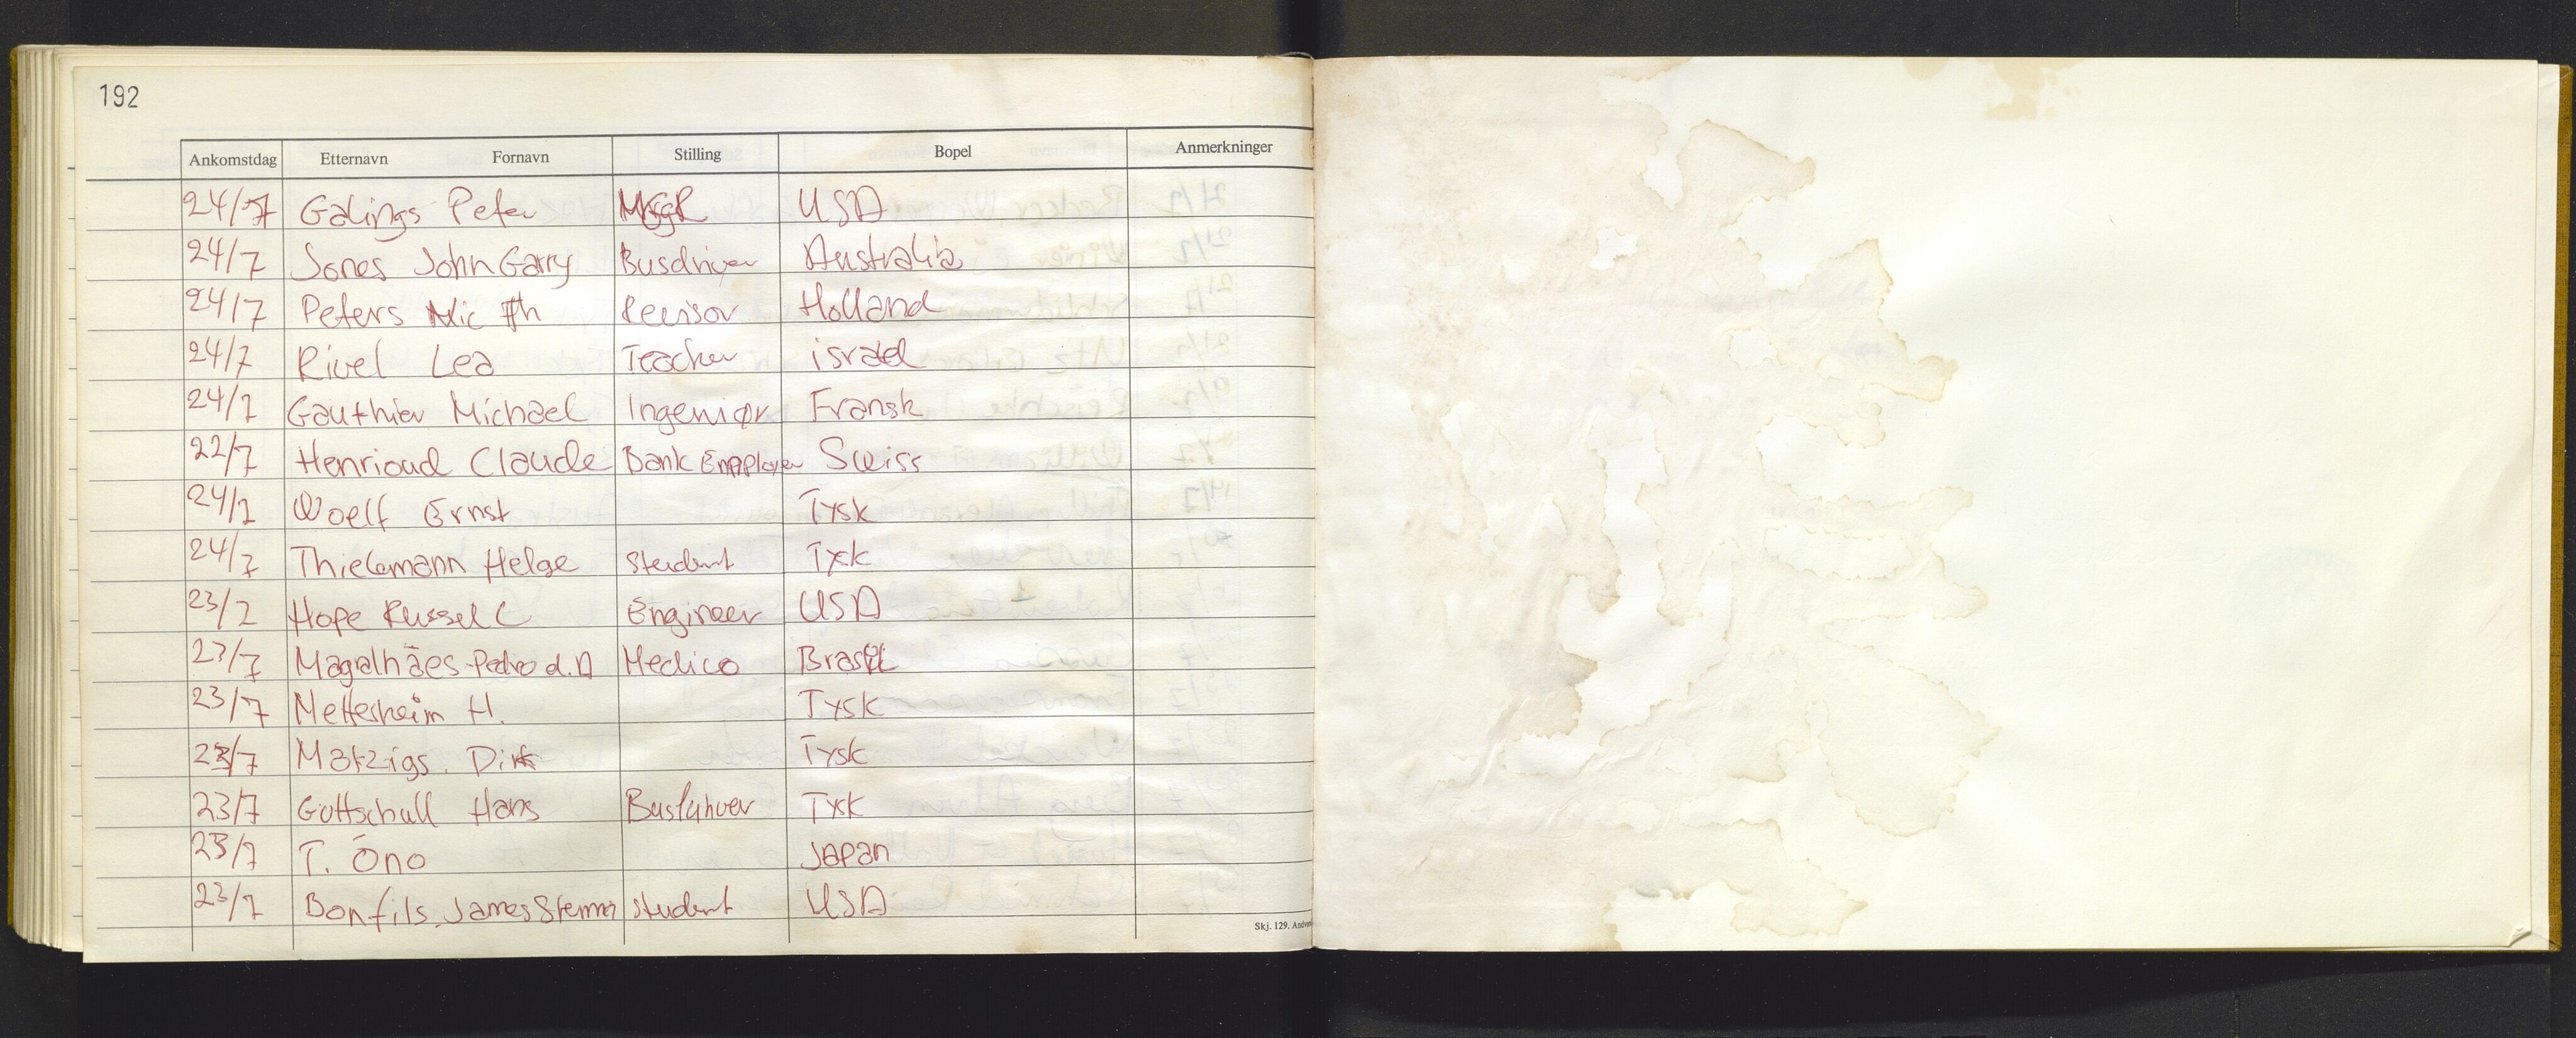 192
Ankomstdag Etternavn Fornavn Stilling Bopel Anmerkninger
24/7 Galings Peter USA
24/7 Jones John Garry Busdriver Australia
24/7 Peters Mic Th Revisor Holland
24/7 Rivel Lea Teacher israel
24/7 Gauthier Michael Ingeniør Fransk
22/7 Henrioud Claude Bank Employer Swiss
24/7 Woelf Ernst Tysk
24/7 Thielemann Helge Student Tysk
23/7 Hope Russel C Engineer USA
23/7 Magalhães Pedro d. A Medico Brasil
23/7 Mettesheim H. Tysk
23/7 Matzigs. Dirk Tysk
23/7 Gottschall Hans Busfahrer Tysk
23/7 T. Ono Japan
23/7 Bonfils James student USA
Skj. 129.